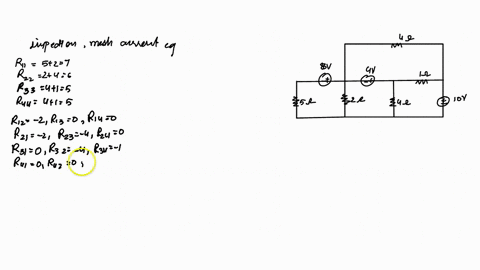 inspection, mesh current eq
R11 = 5+2=7
R22 = 2+4=6
R33 = 4+1=5
R44 = 4+1=5
R12=-2, R13=0, R14=0
R21=-2, R23=-4, R24=0
R31=0, R32=-4, R34=-1
R41=0, R42=0,
4Ω
8V
4V
1Ω
5Ω
2Ω
4Ω
10V